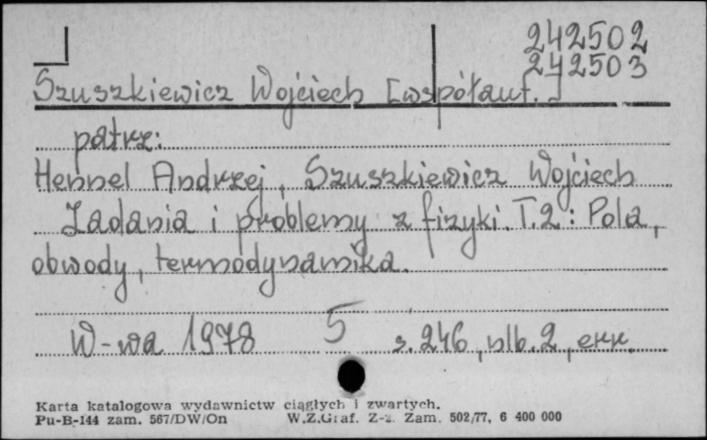 242502
242503
Szuszkiewicz Wojciech [współaut.]
patrz:
Hennel Andrzej, Szuszkiewicz Wojciech
Zadania i problemy z fizyki. T.2: Pola,
obwody, termodynamika.
W-wa 1978 5 s. 246, nlb. 2, err.
Karta katalogowa wydawnictw ciągłych i zwartych.
Pu-B-144 zam. 567/DW/On W.Z.Graf. Z-z. Zam. 502/77, 6 400 000